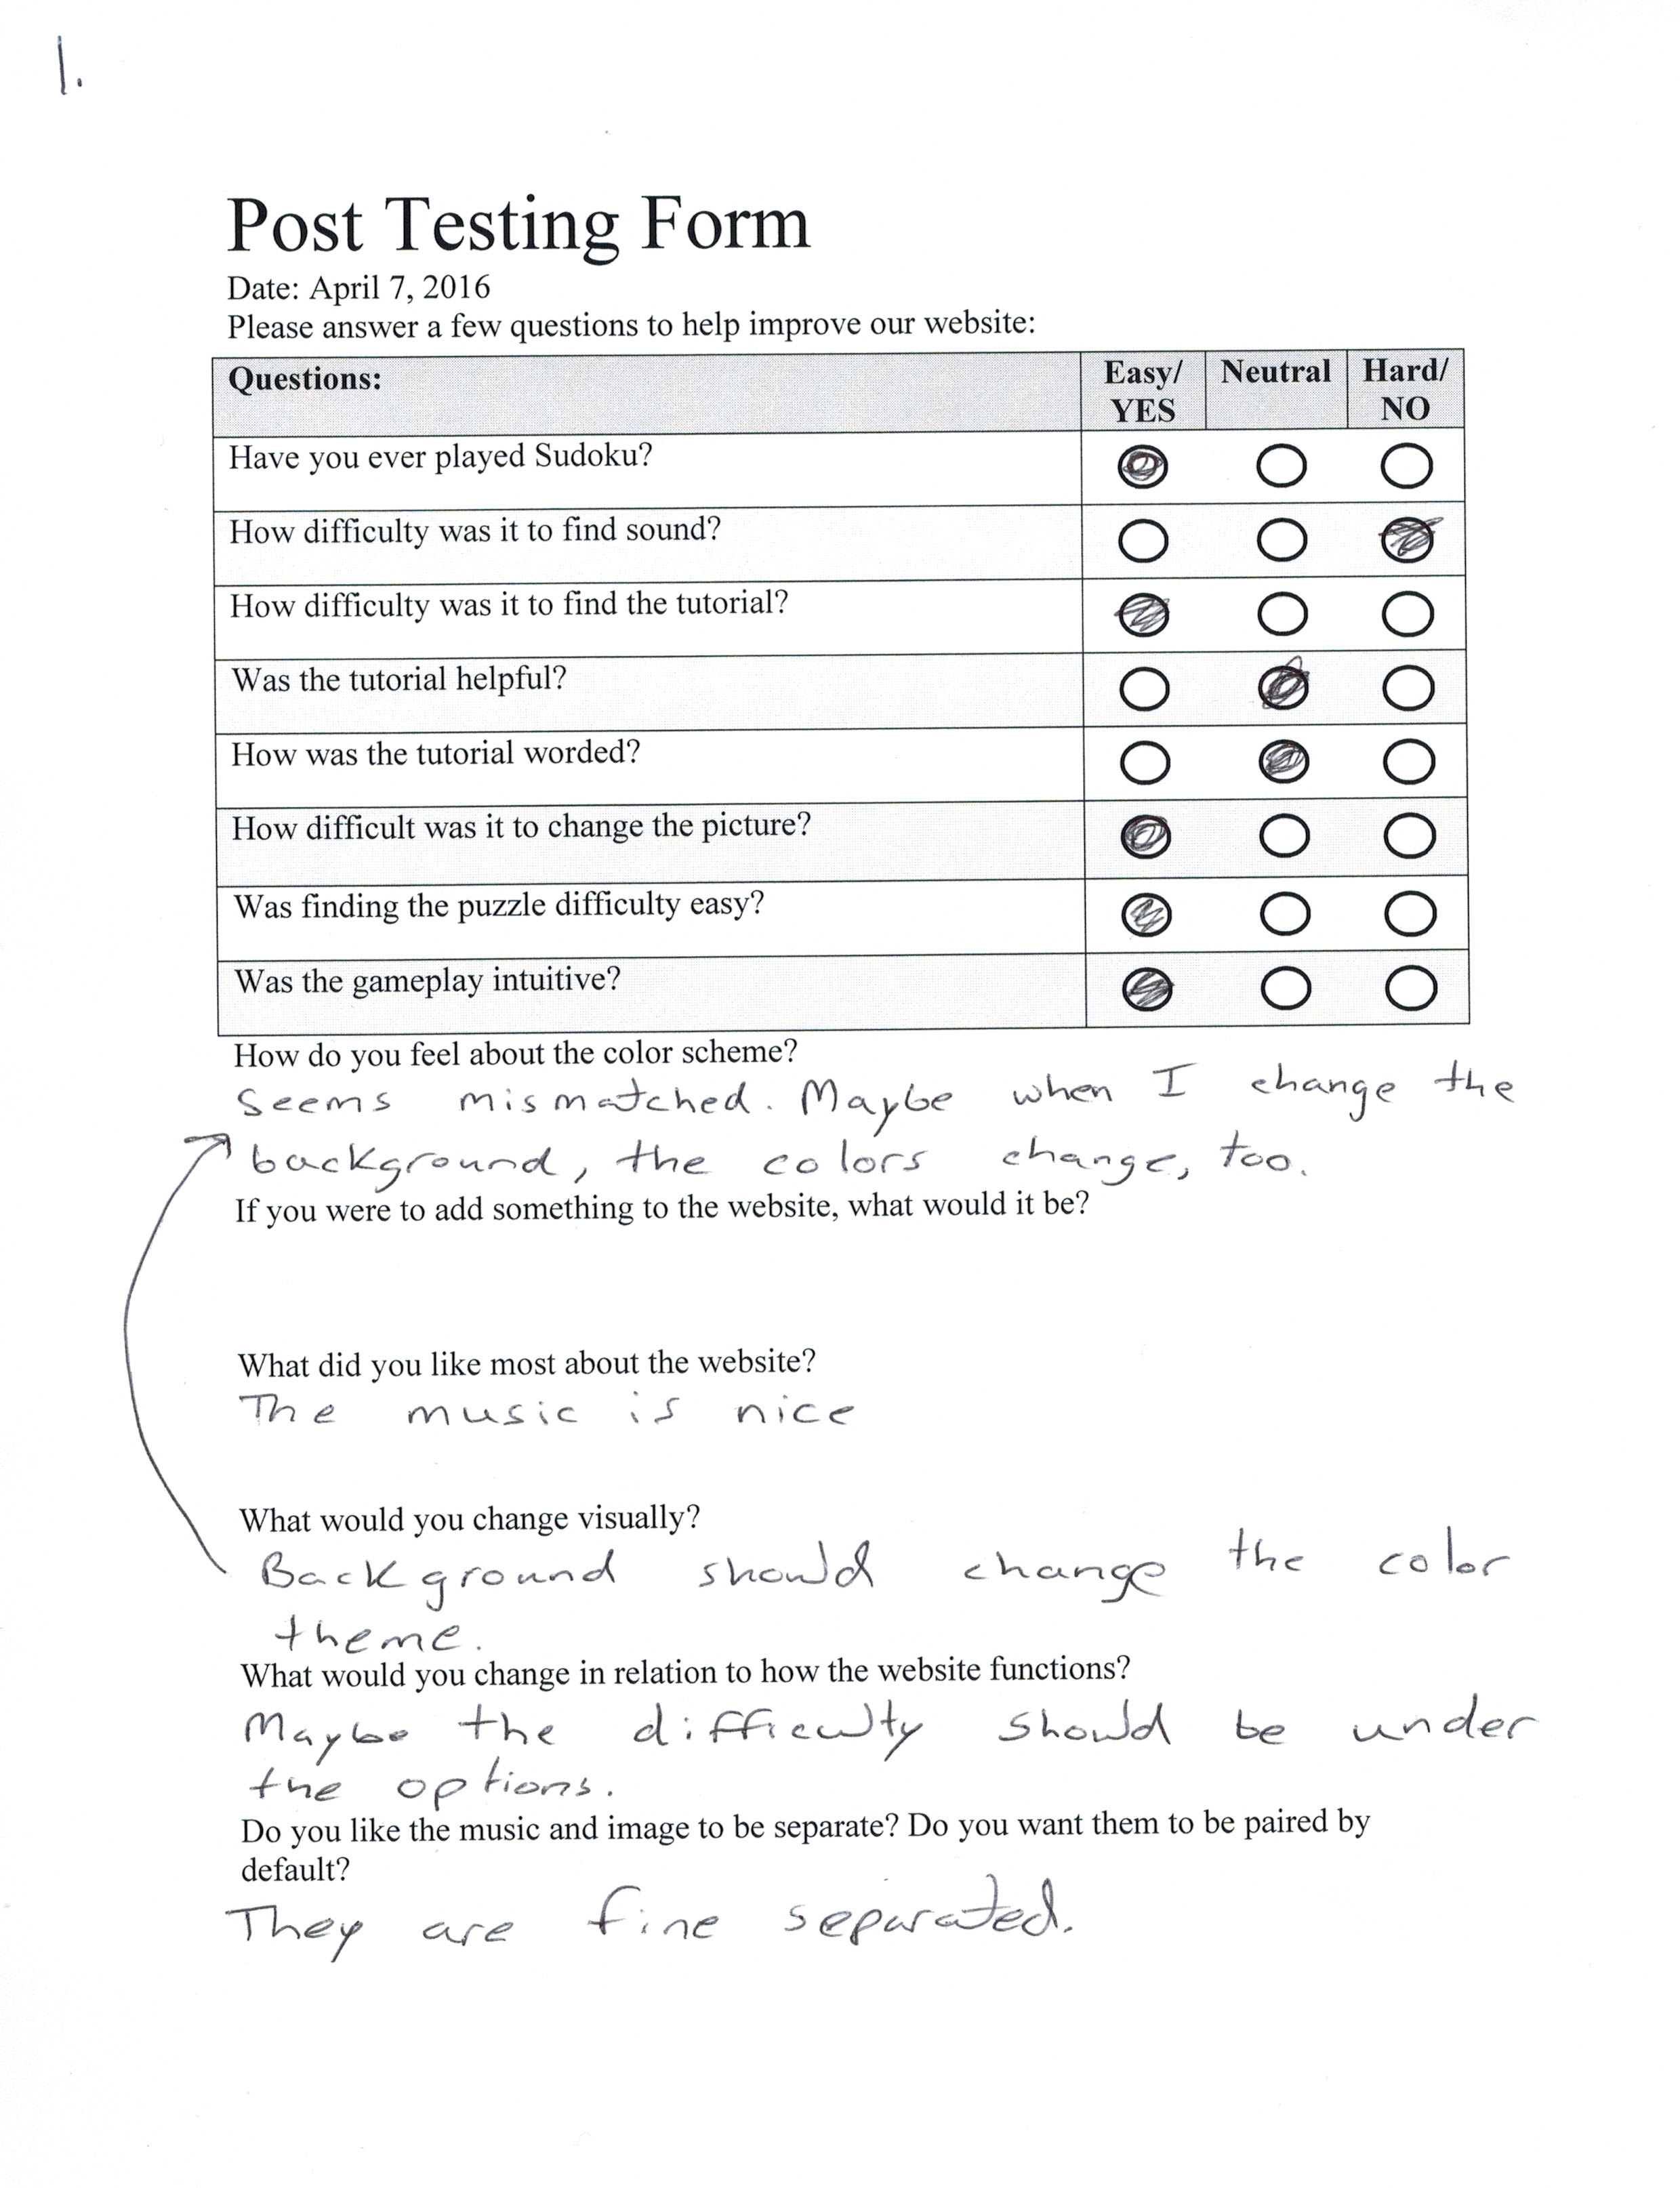 1.
Post Testing Form
Date: April 7, 2016
Please answer a few questions to help improve our website:
Questions: Easy/ YES Neutral Hard/ NO
Have you ever played Sudoku?
How difficulty was it to find sound?
How difficulty was it to find the tutorial?
Was the tutorial helpful?
How was the tutorial worded?
How difficult was it to change the picture?
Was finding the puzzle difficulty easy?
Was the gameplay intuitive?
How do you feel about the color scheme?
Seems mismatched. Maybe when I change the
background, the colors change, too.
If you were to add something to the website, what would it be?
What did you like most about the website?
The music is nice
What would you change visually?
Background should change the color
theme.
What would you change in relation to how the website functions?
Maybe the difficulty should be under
the options.
Do you like the music and image to be separate? Do you want them to be paired by
default?
They are fine separated.